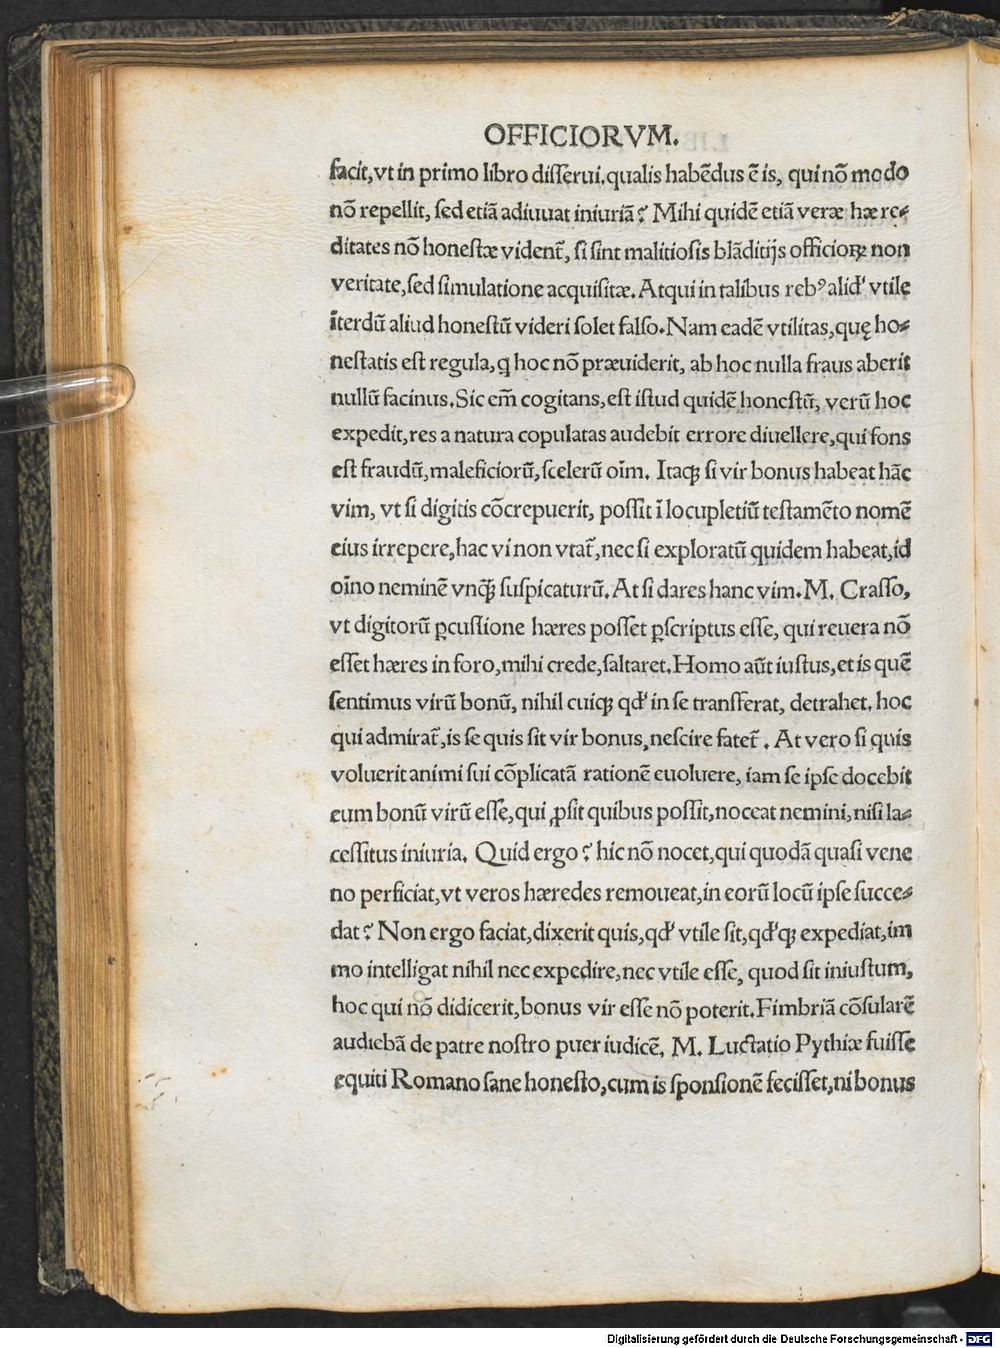 OFFICIORVM.
facit, vt in primo libro disserui. qualis habēdus ē is, qui nō modo
nō repellit, sed etiā adiuuat iniuriā? Mihi quidē etiā veræ hære-
ditates nō honestæ videnť, si sint malitiosis blāditijs officioꝝ non
veritate, sed simulatione acquisitæ. Atqui in talibus rebꝰ aliď vtile
īterdū aliud honestū videri solet falso. Nam eadē vtilitas, quę ho-
nestatis est regula, ꝗ hoc nō præuiderit, ab hoc nulla fraus aberit
nullū facinus. Sic em̄ cogitans, est istud quidē honestū, verū hoc
expedit, res a natura copulatas audebit errore diuellere, qui fons
est fraudū, maleficiorū, scelerū oīm. Itaqꝫ si vir bonus habeat hāc
vim, vt si digitis cōcrepuerit, possit ī locupletiū testamēto nomē
eius irrepere, hac vi non vtať, nec si exploratū quidem habeat, id
oīno neminē vnqꝫ̄ suspicaturū. At si dares hanc vim. M. Crasso,
vt digitorū ꝑcussione hæres posset ꝑscriptus esse, qui reuera nō
esset hæres in foro, mihi crede, saltaret. Homo aūt iustus, et is quē
sentimus virū bonū, nihil cuiqꝫ qď in se transferat, detrahet. hoc
qui admirať, is se quis sit vir bonus, nescire fateť. At vero si quis
voluerit animi sui cōplicatā rationē euoluere, iam se ipse docebit
eum bonū virū esse, qui ꝓsit quibus possit, noceat nemini, nisi la-
cessitus iniuria. Quid ergo? hic nō nocet, qui quodā quasi vene
no perficiat, vt veros hæredes remoueat, in eorū locū ipse succe-
dat? Non ergo faciat, dixerit quis, qď vtile sit, qďqꝫ expediat, im
mo intelligat nihil nec expedire, nec vtile esse, quod sit iniustum,
hoc qui nō didicerit, bonus vir esse nō poterit. Fimbriā cōsularē
audiebā de patre nostro puer iudicē. M. Luctatio Pythiæ fuisse
equiti Romano sane honesto, cum is sponsionē fecisset, ni bonus
Digitalisierung gefördert durch die Deutsche Forschungsgemeinschaft - DFG